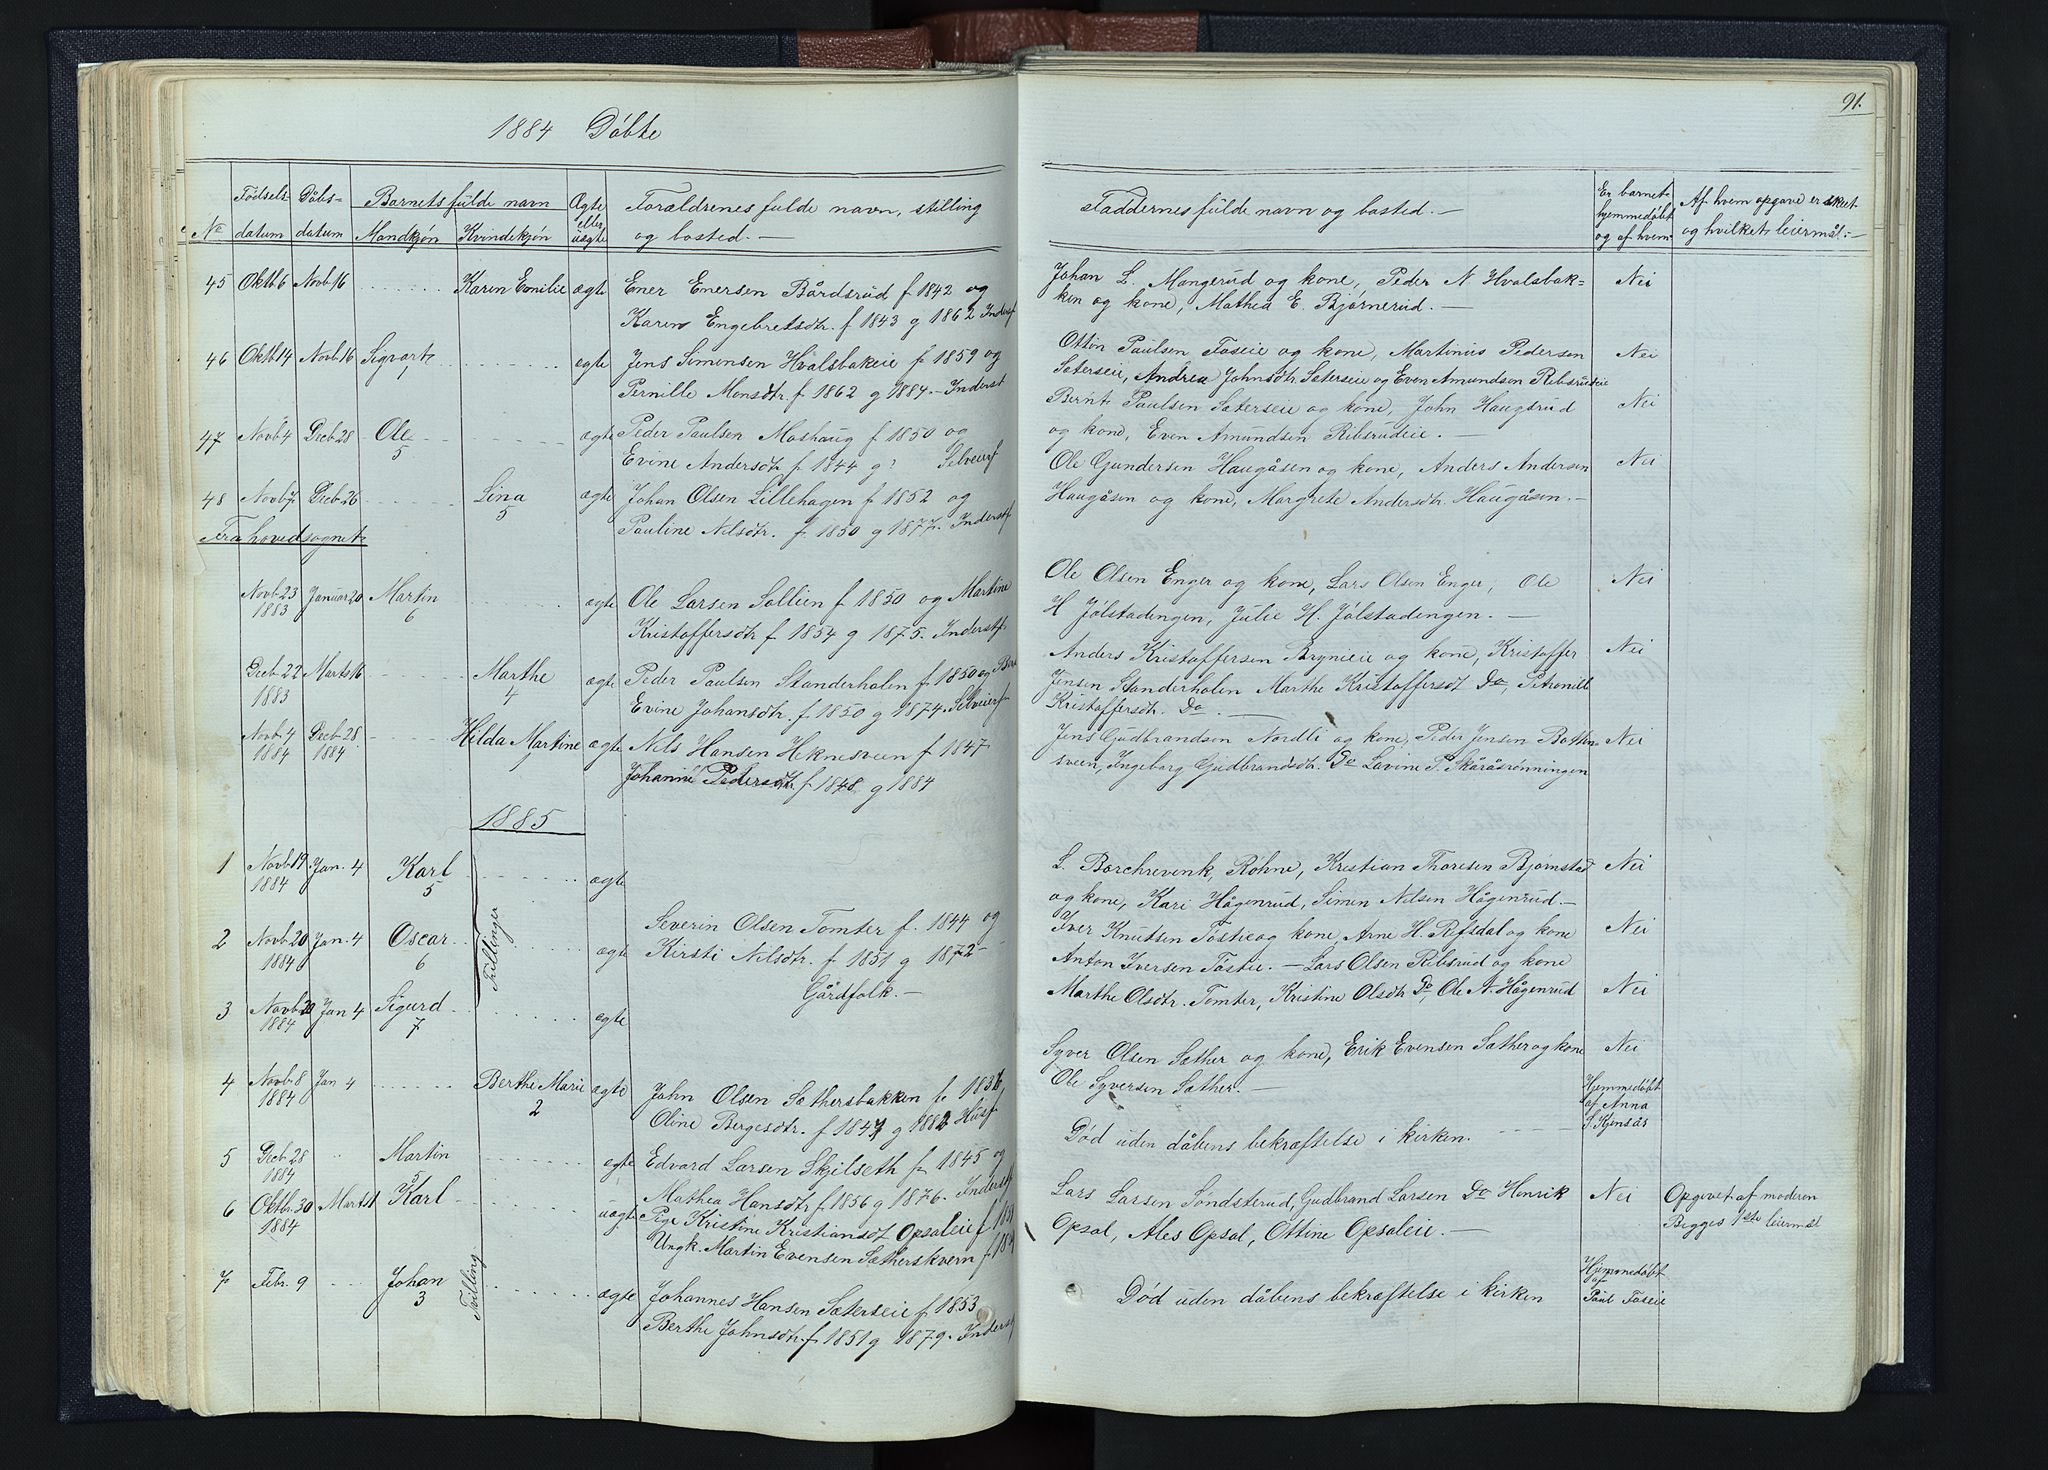 1884 Döbte
No
Fødsels-
datum
Döbs-
datum
Barnets fulde navn
Mandkjøn
Kvindekjøn
Ægte
eller
uægte
Forældrenes fulde navn, stilling
og bosted.—
45 Oktb 6 Novb 16 Karen Emilie ægte Ener Enersen Bårdsrud f 1842 og
Karen Engebretsdtr. f 1843 g 1862 Inderst
46 Oktb 14 Novb 16 Sigvart ægte Jens Simensen Hvalsbakeie f 1859 og
1
Pernille Monsdtr. f 1862 g 1884.— Inderst
47 Novb 4 Decb 28 Ole ægte Peder Paulsen Moshaug f 1850 og
5
Evine Andersdtr f 1844 g? Selveierf
48 Novb 7 Decb 26 Lina ægte Johan Olsen Lillehagen f 1852 og
5
Pauline Nilsdtr. f 1850 g 1877. Inderstf
Fra hovedsognet
Novb 23 Januar 20 Martin ægte Ole Larsen Sollien f 1850 og Martine
1883 6
Kristoffersdtr f 1854 g 1875. Inderstf
Decb 22 Marts 16 Marthe ægte Peder Paulsen Standerholen f 1850 og
1883 4
Evine Johansdtr. f 1850 g 1874. Selveierf
Novb 4 Decb 28 Hilda Martine ægte Nils Hansen Heknesveen f 1847
1884 1884
Johanne Pedersdtr f 1848 g 1884
1885
1 Novb 19 Jan. 4 Karl ægte
1884 5
Trillinger
2 Novb 20 Jan. 4 Oscar ægte Severin Olsen Tomter f. 1844 og
1884 6
Kirsti Nilsdtr. f 1851 g 1872—
Gårdfolk.—
3 Novb 20 Jan 4 Sigurd ægte
1884 7
4 Novb 8 Jan 4 Berthe Marie ægte John Olsen Sæthersbakken f.
1884 2
Oline Bergesdtr. f g Husf
5 Decb 28 Martin ægte Edvard Larsen Skjilseth f 1845 og
1884 5
Mathea Hansdtr f 1856 g 1876. Inderstf
6 Oktbr. 30 Marts 1 Karl uægte Pige Kristine Kristiansdt Opsaleie f
1884
Ungk. Martin Evensen Sætherskvern f
7 Febr. 9 Johan ægte Johannes Hansen Sæterseie f 1853
3 Tvilling
Berthe Johnsdtr. f 1851 g 1879. Inderstf
91.
Faddernes fulde navn og bosted.—
Er barnet
hjemmedöbt
og af hvem
Af hvem opgave er skeet
og hvilket leiermål:—
Johan L. Mangerud og kone, Peder N Hvalsbak= Nei
ken og kone, Mathea E. Bjørnerud.—
Ottin Paulsen Foseie og kone, Martinius Pedersen Nei
Sæterseie, Andrea Johnsdtr Sæterseie og Even Amundsen Ribsrudeie
Bernt Paulsen Sæterseie og kone, John Haugsrud Nei
og kone, Even Amundsen Ribsrudeie.—
Ole Gundersen Haugåsen og kone, Anders Andersen Nei
Haugåsen og kone, Margrete Andersdtr. Haugåsen.—
Ole Olsen Enger og kone, Lars Olsen Enger, Ole Nei
H Jølstadengen, Julie H. Jølstadengen.—
Anders Kristoffersen Brynieie og kone, Kristoffer Nei
Jensen Standerholen Marthe Kristoffersdt Do, Petronille
Kristoffersdtr. Do.—
Jens Gudbrandsen Nordli og kone, Peder Jensen Botten= Nei
sveen, Ingeborg Gudbrandsdtr. Do Lavine P. Skåråsrønningen
L. Borchrevenk, Røhne, Kristian Thoresen Bjørnstad Nei
og kone, Kari Hågenrud, Simen Nilsen Hågenrud.—
Iver Knutsen Tostie og kone, Arne H. Refsdal og kone Nei
Anton Iversen Tøstie.— Lars Olsen Ribsrud og kone
Marthe Olsdtr. Tomter, Kristine Olsdtr Do, Ole N. Hågenrud Nei
Syver Olsen Sæther og kone, Erik Evensen Sæther og kone Nei
Ole Syversen Sæther.—
Hjemmedöbt
af Anna
S. Kjensås
Död uden dåbens bekræftelse i kirken.
Lars Larsen Søndsterud, Gudbrand Larsen Do Henrik Nei Opgivet af moderen
Opsal, Ales Opsal, Ottine Opsaleie.— Begges 1ste leiermål
Hjemmedöbt
af
Paul Foseie
Död uden dåbens bekræftelse i kirken